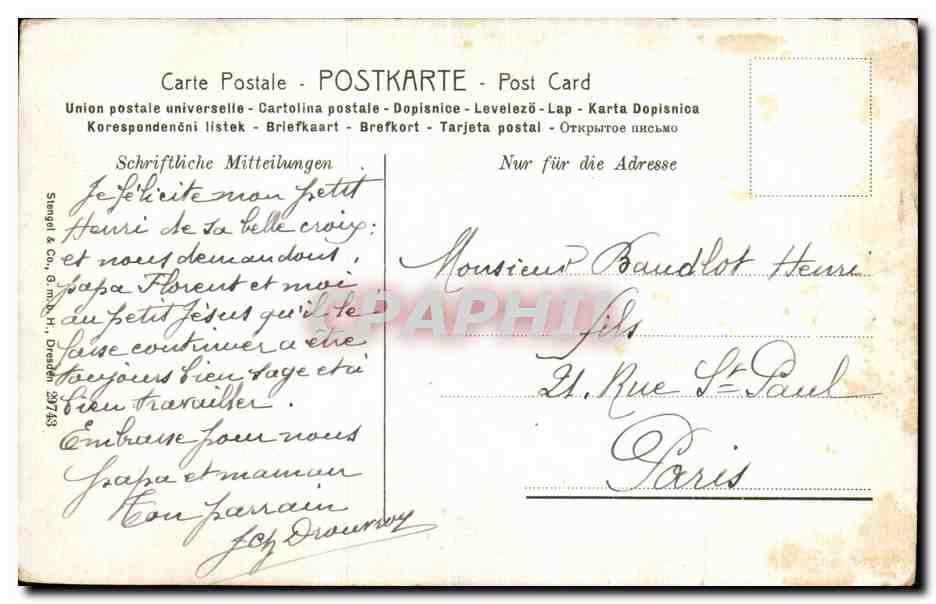 Carte Postale - POSTKARTE - Post Card
Union postale universelle - Cartolina postale - Dopisnice - Levelező - Lap - Karta Dopisnica
Korespondenčni listek - Briefkaart - Brefkort - Tarjeta postal - Открытое письмо
Schriftliche Mitteilungen
Nur für die Adresse
Je félicite mon petit
Henri de sa belle croix;
et nous demandons,
papa Florent et moi
au petit Jésus qu'il te
fasse continuer a être
toujours bien sage et à
bien travailler.
Embrasse pour nous
papa et maman
Ton parrain
Drouvroy
Monsieur Baudlot Henri
fils
21. Rue St Paul
Paris
Stengel & Co., G. m. b. H., Dresden 29743
CPAPHIL